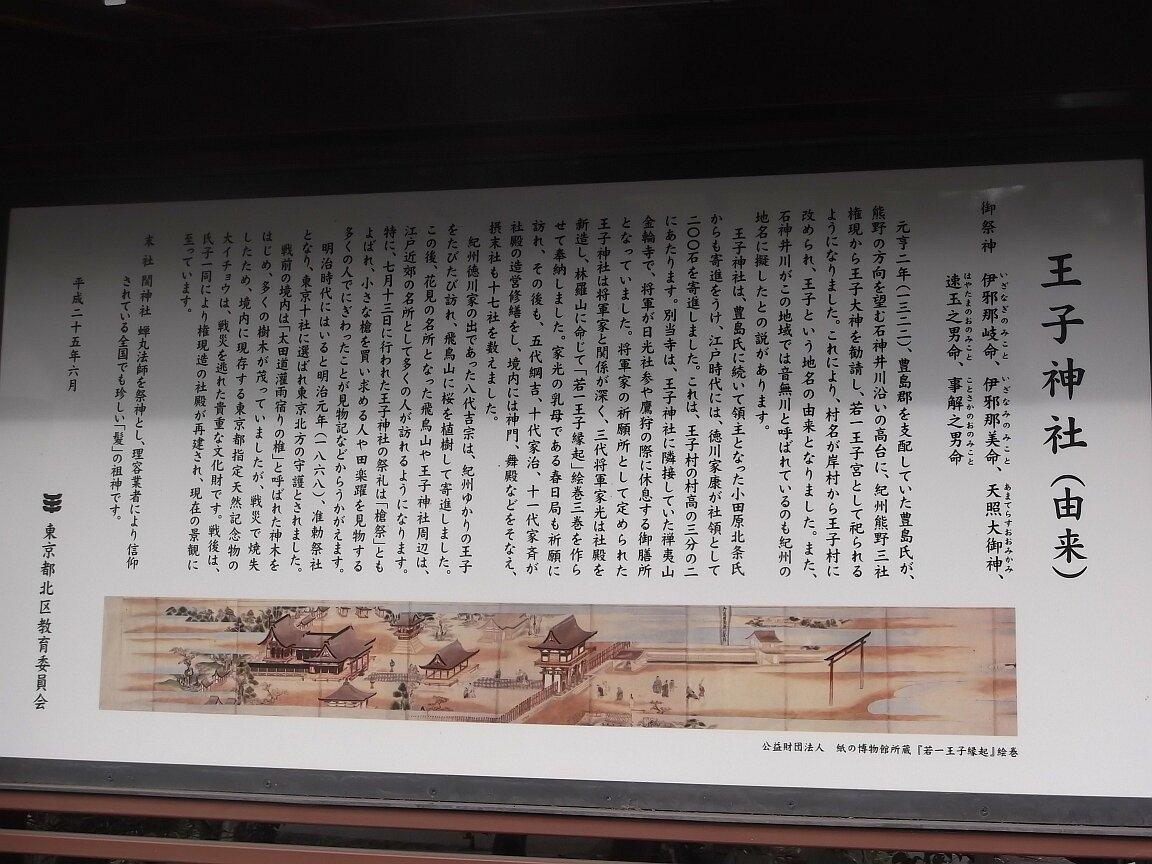 王子神社（由来）
御祭神　伊邪那岐命、伊邪那美命、天照大御神、
いざなぎのみこと　いざなみのみこと　あまてらすおおみかみ
速玉之男命、事解之男命
はやたまのおのみこと　ことさかのおのみこと
元亨二年（一三二二）、豊島郡を支配していた豊島氏が、
熊野の方向を望む石神井川沿いの高台に、紀州熊野三社
権現から王子大神を勧請し、若一王子宮として祀られる
ようになりました。これにより、村名が岸村から王子村に
改められ、王子という地名の由来となりました。また、
石神井川がこの地域では音無川と呼ばれているのも紀州の
地名に擬したとの説があります。
王子神社は、豊島氏に続いて領主となった小田原北条氏
からも寄進をうけ、江戸時代には、徳川家康が社領として
二〇〇石を寄進しました。これは、王子村の村高の三分の二
にあたります。別当寺は、王子神社に隣接していた禅夷山
金輪寺で、将軍が日光社参や鷹狩の際に休息する御膳所
となっていました。将軍家の祈願所として定められた
王子神社は将軍家と関係が深く、三代将軍家光は社殿を
新造し、林羅山に命じて「若一王子縁起」絵巻三巻を作ら
せて奉納しました。家光の乳母である春日局も祈願に
訪れ、その後も、五代綱吉、十代家治、十一代家斉が
社殿の造営修繕をし、境内には神門、舞殿などをそなえ、
摂末社も十七社を数えました。
紀州徳川家の出であった八代吉宗は、紀州ゆかりの王子
をたびたび訪れ、飛鳥山に桜を植樹して寄進しました。
この後、花見の名所となった飛鳥山や王子神社周辺は、
江戸近郊の名所として多くの人が訪れるようになります。
特に、七月十三日に行われた王子神社の祭礼は「槍祭」とも
よばれ、小さな槍を買い求める人や田楽躍を見物する
多くの人でにぎわったことが見物記などからうかがえます。
明治時代にはいると明治元年（一八六八）、准勅祭社
となり、東京十社に選ばれ東京北方の守護とされました。
戦前の境内は「太田道灌雨宿りの椎」と呼ばれた神木を
はじめ、多くの樹木が茂っていましたが、戦災で焼失
したため、境内に現存する東京都指定天然記念物の
大イチョウは、戦災を逃れた貴重な文化財です。戦後は、
氏子一同により権現造の社殿が再建され、現在の景観に
至っています。
末社　関神社　蝉丸法師を祭神とし、理容業者により信仰
されている全国でも珍しい「髪」の祖神です。
平成二十五年六月
東京都北区教育委員会
公益財団法人　紙の博物館所蔵『若一王子縁起』絵巻